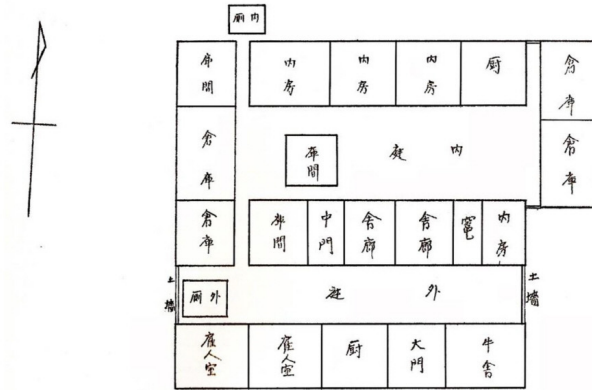 内厠
間
内房
内房
内房
厨
倉庫
倉庫
庫間
内庭
倉庫
倉庫
庫間
中門
舍廊
舍廊
竈
内房
土墻
外厠
外庭
土墻
雇人室
雇人室
厨
大門
牛舍